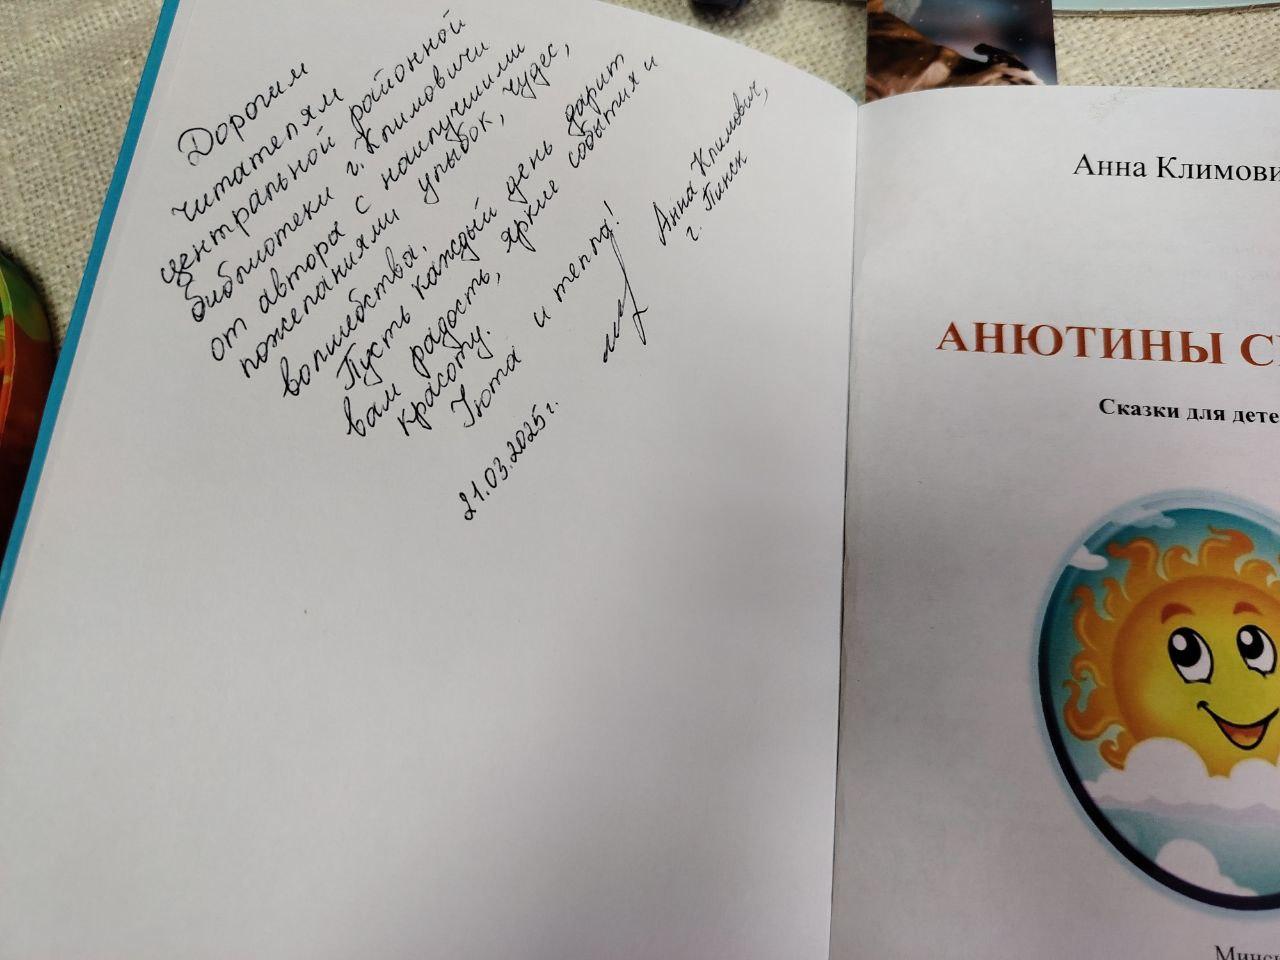 Дорогим
читателям
центральной районной
библиотеки г. Климовичи
от автора с наилучшими
пожеланиями улыбок, чудес,
волшебства.
Пусть каждый день дарит
вам радость, яркие события и
красоту.
Уюта и тепла!
Анна Климович,
г. Пинск
21.03.2025г.
Анна Климови
АНЮТИНЫ С
Сказки для дете
Минс